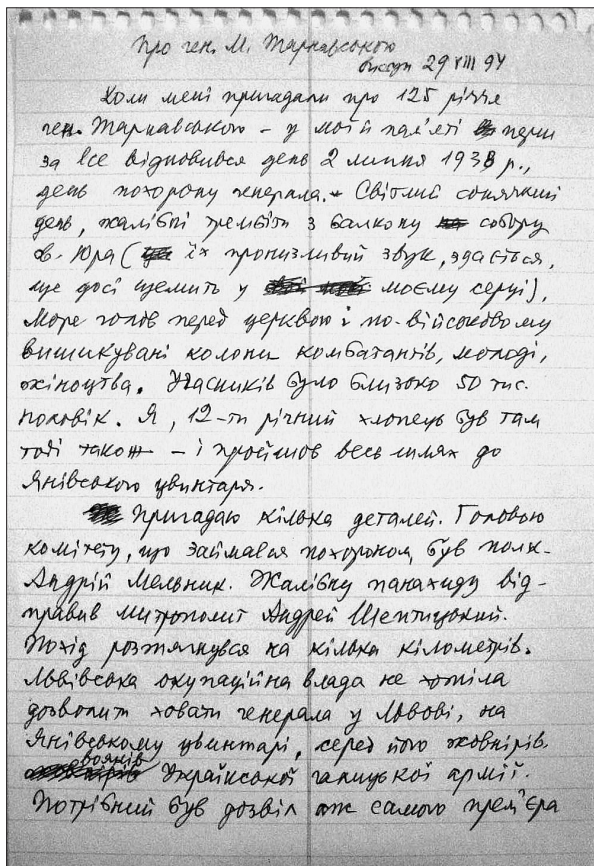 Про ген. М. Тарнавського
виступ 29 VIII 94
Коли мені пригадали про 125 річчя
ген. Тарнавського – у моїй пам'яті перш
за все відновився день 2 липня 1938 р.,
день похорону генерала. Світлий сонячний
день, жалібні трембіти з балкону собору
св. Юра (їх пронизливий звук, здається,
ще досі щемить у моєму серці),
море голов перед церквою і по-військовому
вишикувані колони комбатантів, молоді,
жіноцтва. Учасників було близько 50 тис.
чоловік. Я, 12-ти річний хлопець був там
тоді також – і пройшов весь шлях до
Янівського цвинтаря.
Пригадаю кілька деталей. Головою
комітету, що займався похороном, був полк.
Андрій Мельник. Жалібну панахиду від-
правив митрополит Андрей Шептицький.
Похід розтягнувся на кілька кілометрів.
Львівська окупаційна влада не хотіла
дозволити ховати генерала у Львові, на
Янівському цвинтарі, серед його жовнірів
вояків Української галицької армії.
Потрібний був дозвіл аж самого прем'єра